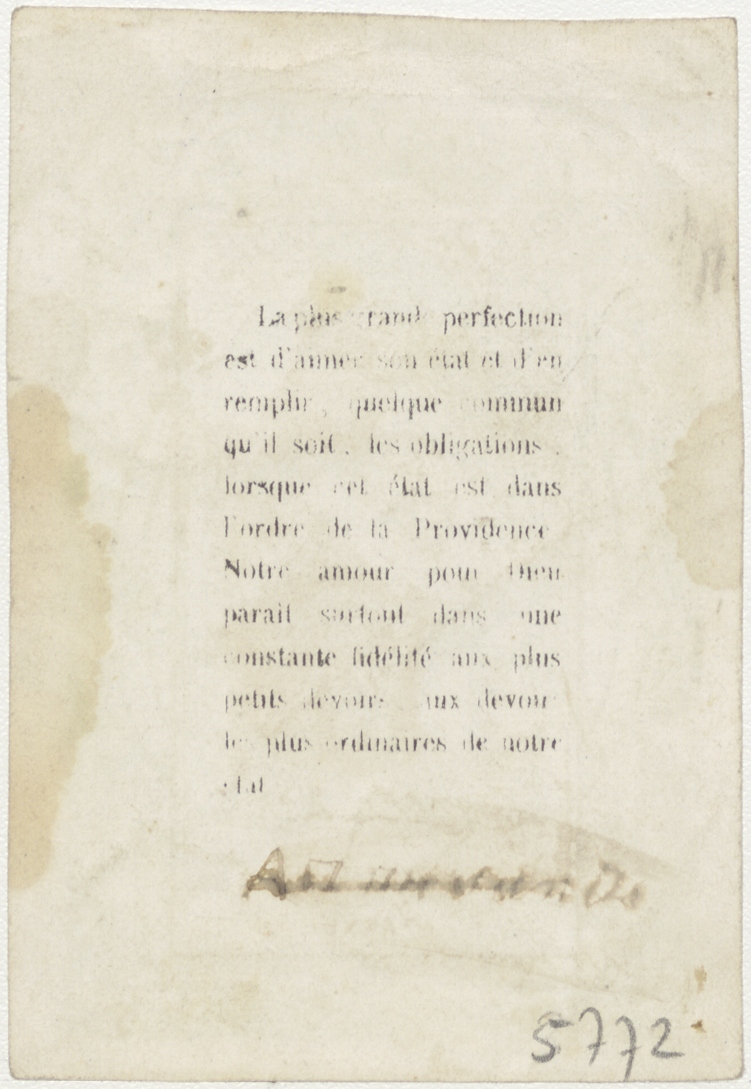 La plus grande perfection
est d'aimer son état et d'en
remplir, quelque commun
qu'il soit, les obligations,
lorsque cet état est dans
l'ordre de la Providence.
Notre amour pour Dieu
parait surtout dans une
constante fidélité aux plus
petits devoirs, aux devoirs
les plus ordinaires de notre
état
5772